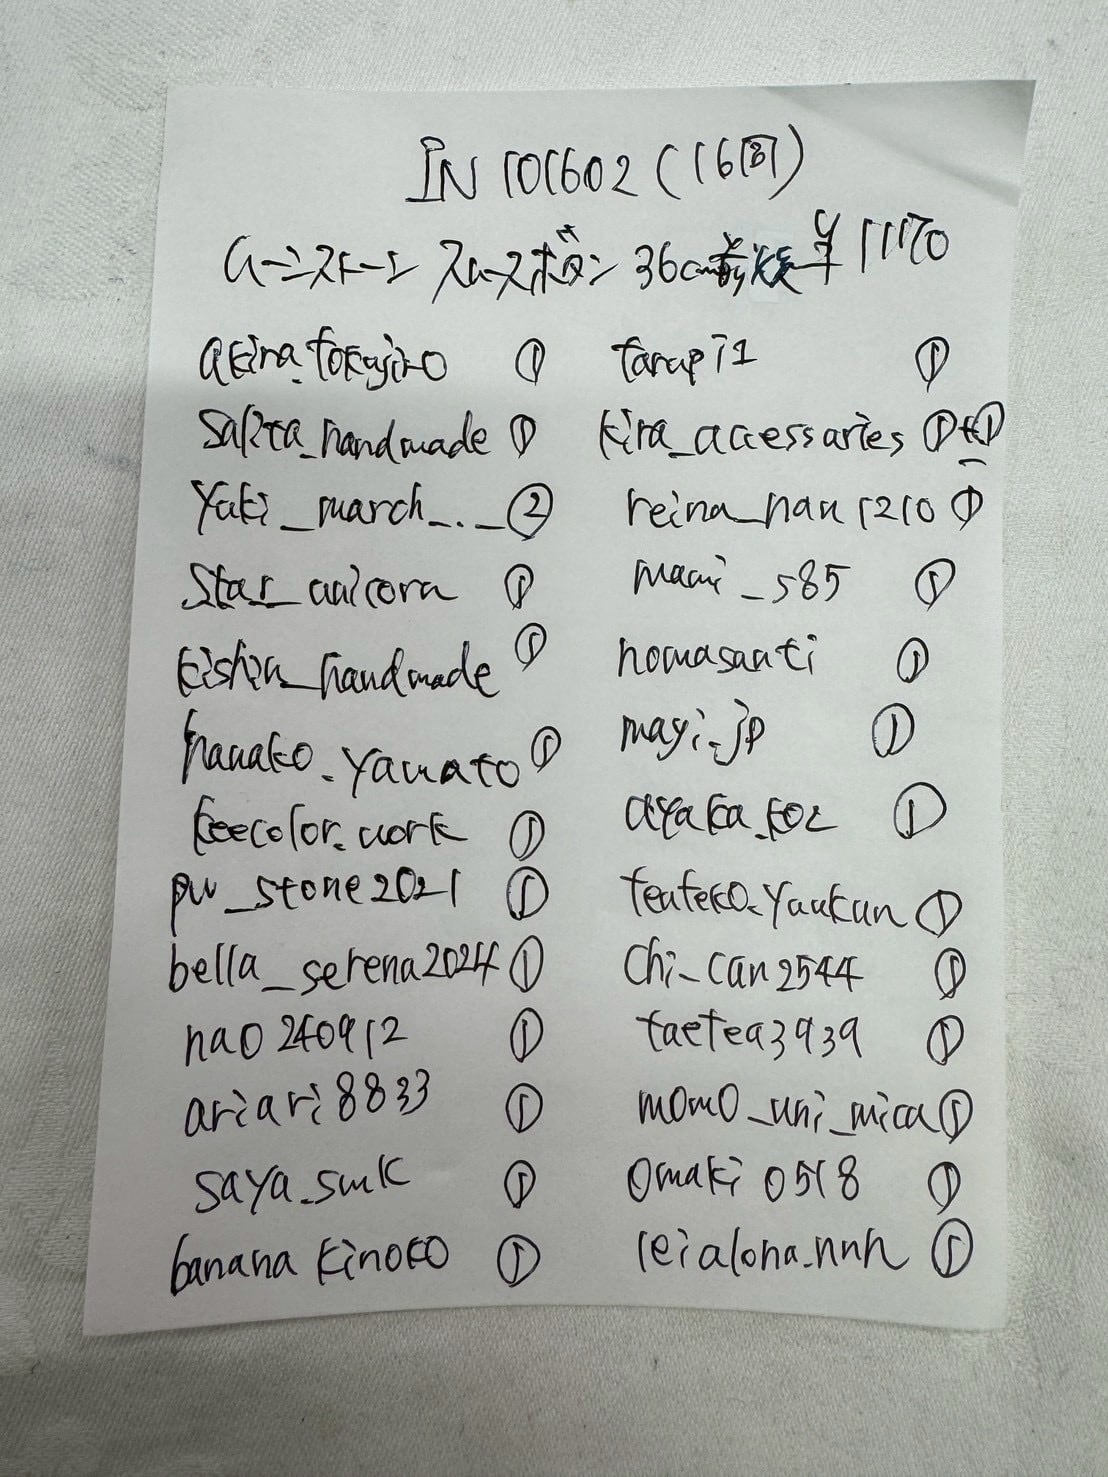 IN 101602 (16回)
ムーンストーン 36cm ¥11170
akira_tokujiro ①
salita_handmade ①
yuki_march_._ ②
star_unicorn ①
kishin_handmade ①
hanako.yamato ①
keecolor.work ①
pw_stone2021 ①
bella_serena2024 ①
nao240912 ①
ariari8833 ①
saya.smk ①
banana kinoko ①
tarupi1 ①
kira_accessaries ①+①
reina_nan1210 ①
mami_s85 ①
nomasanti ①
mayi.jp ①
ayaka.koz ①
tenteko.yankun ①
chi_can2544 ①
taetea3939 ①
momo_uni_mica ①
omaki0518 ①
leialoha.nnh ①